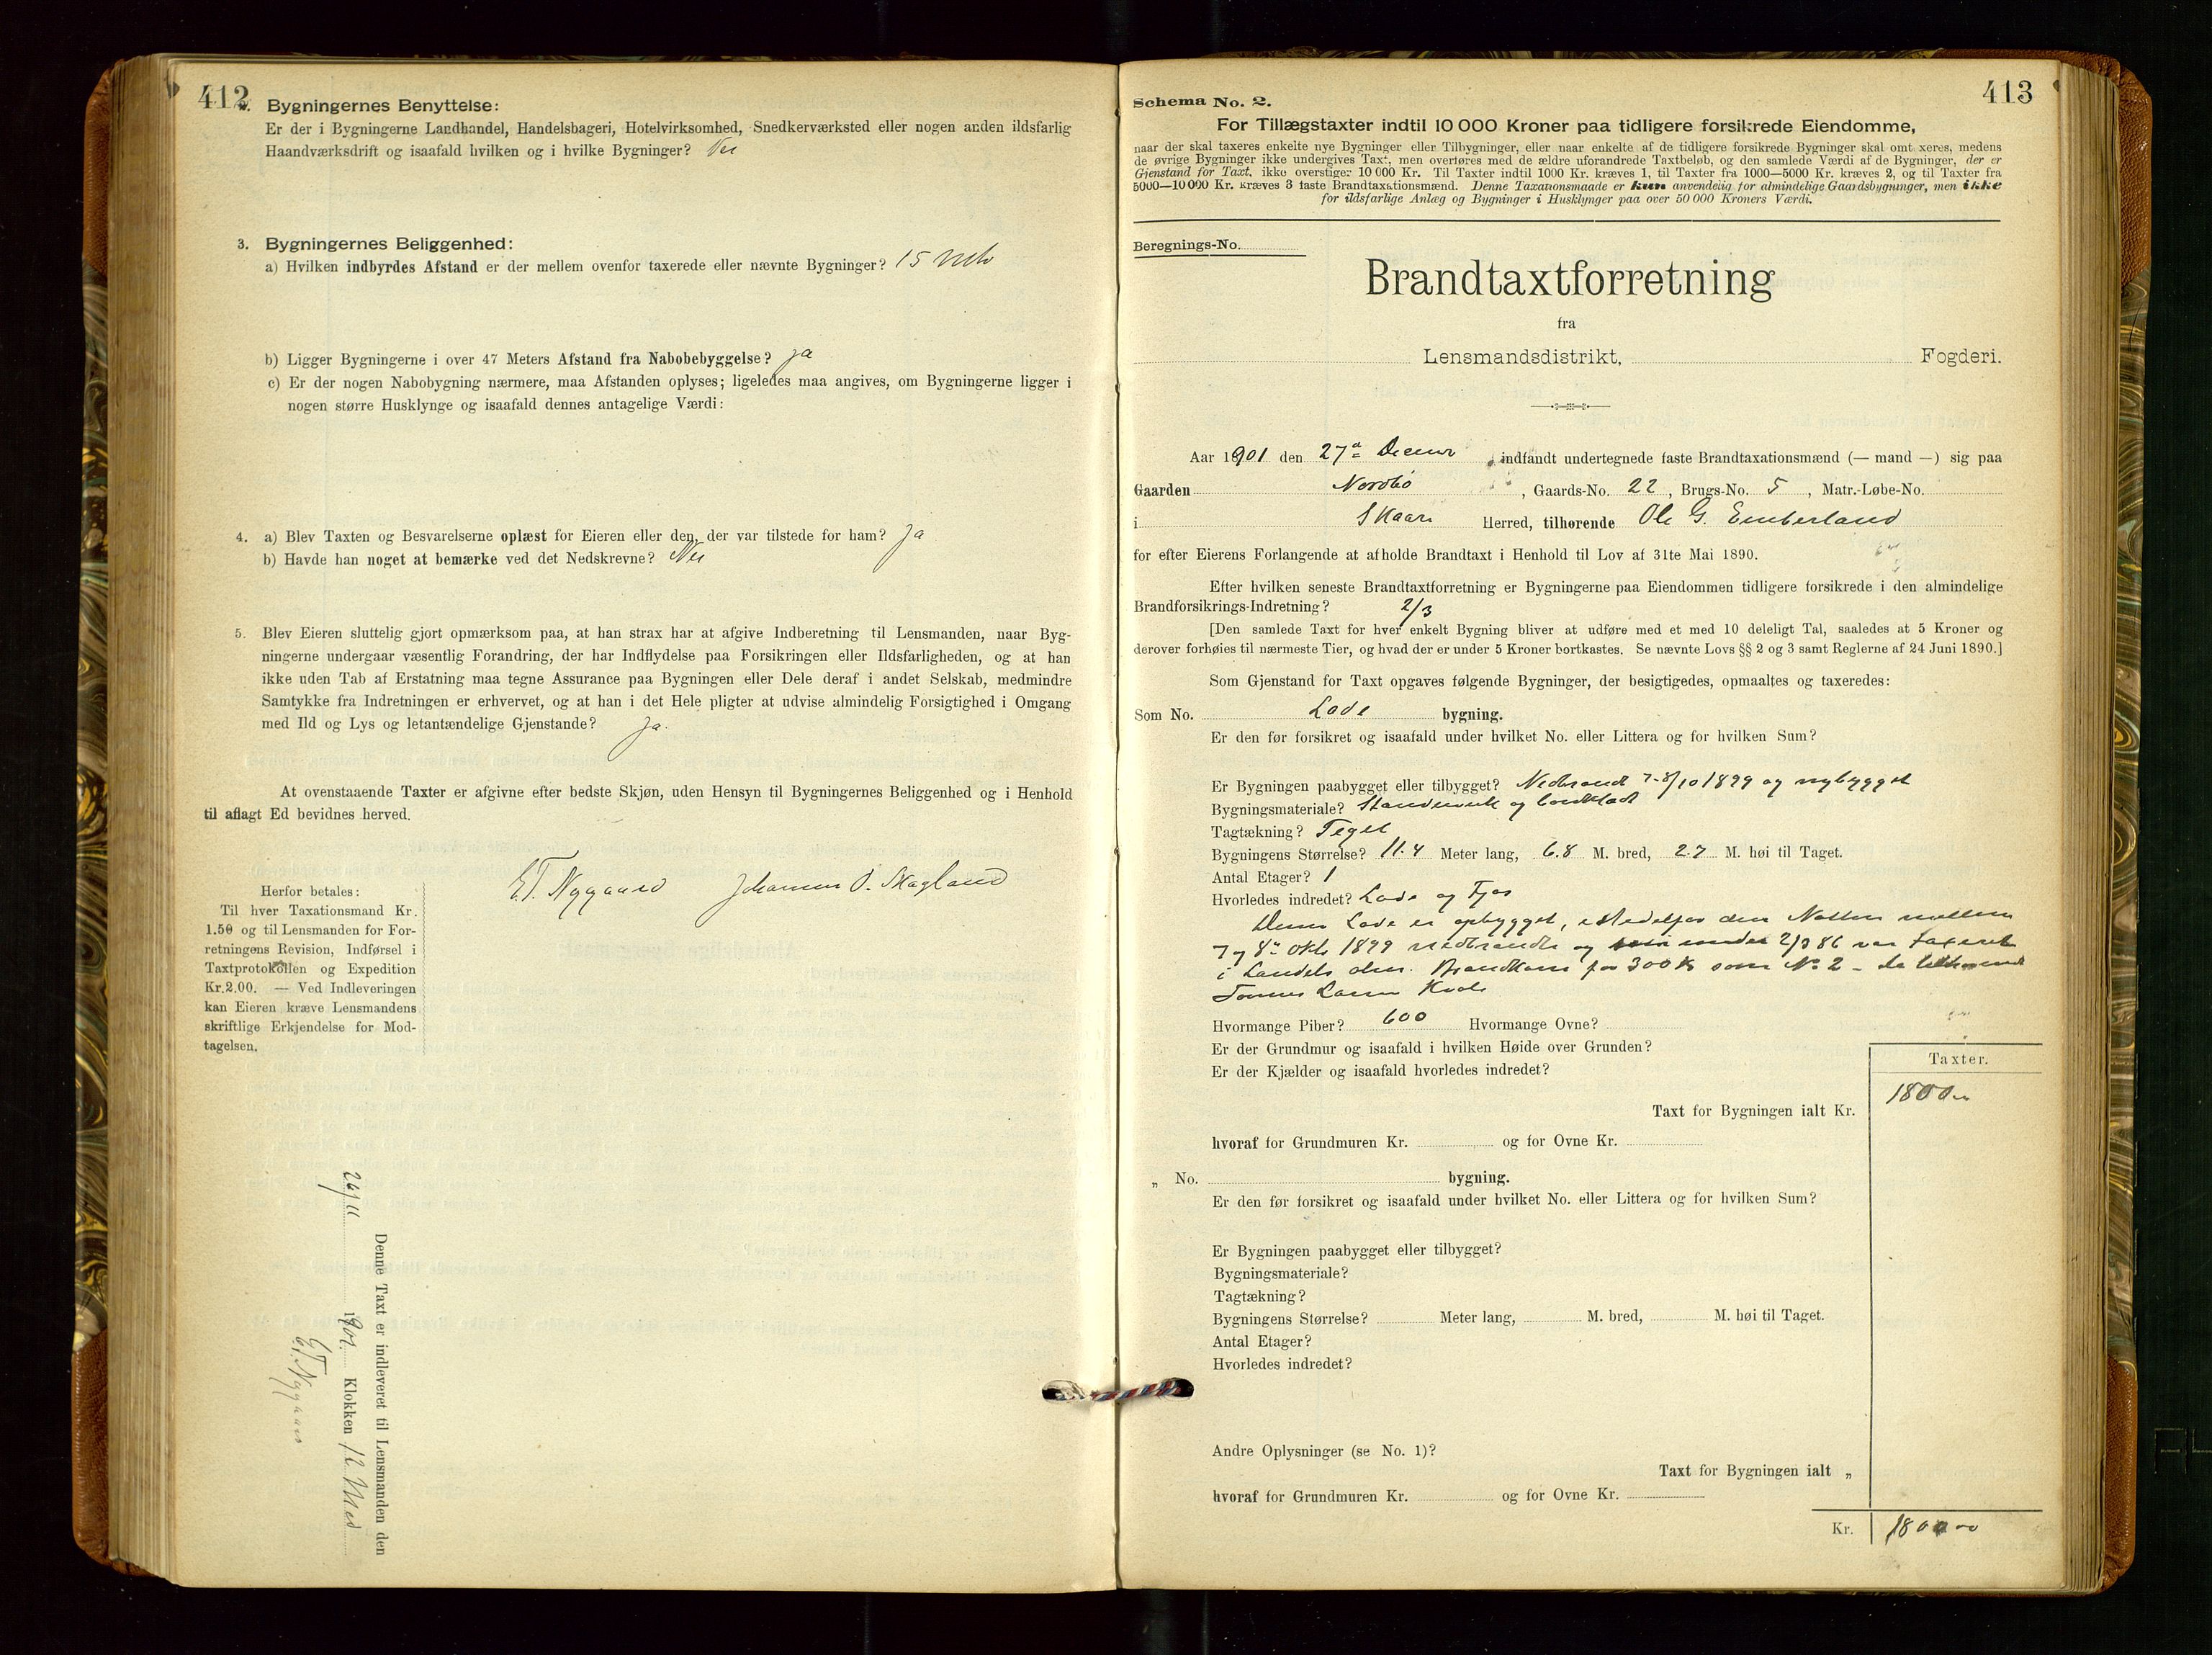 412
2. Bygningernes Benyttelse:
Er der i Bygningerne Landhandel, Handelsbageri, Hotelvirksomhed, Snedkerværksted eller nogen anden ildsfarlig
Haandværksdrift og isaafald hvilken og i hvilke Bygninger? Nei
3. Bygningernes Beliggenhed:
a) Hvilken indbyrdes Afstand er der mellem ovenfor taxerede eller nævnte Bygninger? 15 Mtr
b) Ligger Bygningerne i over 47 Meters Afstand fra Nabobebyggelse? Ja
c) Er der nogen Nabobygning nærmere, maa Afstanden oplyses; ligeledes maa angives, om Bygningerne ligger i
nogen større Husklynge og isaafald dennes antagelige Værdi:
4. a) Blev Taxten og Besvarelserne oplæst for Eieren eller den, der var tilstede for ham? Ja
b) Havde han noget at bemærke ved det Nedskrevne? Nei
5. Blev Eieren sluttelig gjort opmærksom paa, at han strax har at afgive Indberetning til Lensmanden, naar Byg-
ningerne undergaar væsentlig Forandring, der har Indflydelse paa Forsikringen eller Ildsfarligheden, og at han
ikke uden Tab af Erstatning maa tegne Assurance paa Bygningen eller Dele deraf i andet Selskab, medmindre
Samtykke fra Indretningen er erhvervet, og at han i det Hele pligter at udvise almindelig Forsigtighed i Omgang
med Ild og Lys og letantændelige Gjenstande? Ja.
At ovenstaaende Taxter er afgivne efter bedste Skjøn, uden Hensyn til Bygningernes Beliggenhed og i Henhold
til aflagt Ed bevidnes herved.
E.T. Nygaard Johannes O. Skagland
Herfor betales:
Til hver Taxationsmand Kr.
1.50 og til Lensmanden for For-
retningens Revision, Indførsel i
Taxtprotokollen og Expedition
Kr. 2.00. — Ved Indleveringen
kan Eieren kræve Lensmandens
skriftlige Erkjendelse for Mod-
tagelsen.
Denne Taxt er indleveret til Lensmanden den
26/11 1901. Klokken 12 Med
E.T. Nygaard
413
Schema No. 2.
For Tillægstaxter indtil 10 000 Kroner paa tidligere forsikrede Eiendomme,
naar der skal taxeres enkelte nye Bygninger eller Tilbygninger, eller naar enkelte af de tidligere forsikrede Bygninger skal omtaxeres, medens
de øvrige Bygninger ikke undergives Taxt, men overføres med de ældre uforandrede Taxtbeløb, og den samlede Værdi af de Bygninger, der er
Gjenstand for Taxt, ikke overstiger 10 000 Kr. Til Taxter indtil 1000 Kr. kræves 1, til Taxter fra 1000—5000 Kr. kræves 2, og til Taxter fra
5000—10 000 Kr. kræves 3 faste Brandtaxationsmænd. Denne Taxationsmaade er kun anvendelig for almindelige Gaardsbygninger, men ikke
for ildsfarlige Anlæg og Bygninger i Husklynger paa over 50 000 Kroners Værdi.
Beregnings-No.
Brandtaxtforretning
fra
Lensmandsdistrikt, Fogderi.
Aar 1901 den 27de indfandt undertegnede faste Brandtaxationsmænd (— mand —) sig paa
Gaarden Nordbø, Gaards-No. 22, Brugs-No. 5, Matr.-Løbe-No.
i Skaare Herred, tilhørende Ole G. Emberland
for efter Eierens Forlangende at afholde Brandtaxt i Henhold til Lov af 31te Mai 1890.
Efter hvilken seneste Brandtaxtforretning er Bygningerne paa Eiendommen tidligere forsikrede i den almindelige
Brandforsikrings-Indretning? 2/3
[Den samlede Taxt for hver enkelt Bygning bliver at udføre med et med 10 deleligt Tal, saaledes at 5 Kroner og
derover forhøies til nærmeste Tier, og hvad der er under 5 Kroner bortkastes. Se nævnte Lovs §§ 2 og 3 samt Reglerne af 24 Juni 1890.]
Som Gjenstand for Taxt opgaves følgende Bygninger, der besigtigedes, opmaaltes og taxeredes:
Som No. Lade bygning.
Er den før forsikret og isaafald under hvilket No. eller Littera og for hvilken Sum?
Er Bygningen paabygget eller tilbygget? Nedbrændt 7-8/10 1899 og nybygget
Bygningsmateriale? Standerverk og bordklædt
Tagtækning? Tegel
Bygningens Størrelse? 11.4 Meter lang, 6.8 M. bred, 2.7 M. høi til Taget.
Antal Etager? 1
Hvorledes indredet? Lade og Fjøs
Denne Lade er opbygget, istedetfor den Natten mellem
7 og 8de Okt 1899 nedbrændte og under 2/3 86 var taxeret
i Landets alm. Brandkasse for 300 Kr som No 2 – da tilhørende
Kvale
Hvormange Piber? 600 Hvormange Ovne?
Er der Grundmur og isaafald i hvilken Høide over Grunden?
Er der Kjælder og isaafald hvorledes indredet?
Taxter.
Taxt for Bygningen ialt Kr. 1800
hvoraf for Grundmuren Kr. og for Ovne Kr.
„ No. bygning.
Er den før forsikret og isaafald under hvilket No. eller Littera og for hvilken Sum?
Er Bygningen paabygget eller tilbygget?
Bygningsmateriale?
Tagtækning?
Bygningens Størrelse? Meter lang, M. bred, M. høi til Taget.
Antal Etager?
Hvorledes indredet?
Andre Oplysninger (se No. 1)?
Taxt for Bygningen ialt „
hvoraf for Grundmuren Kr. og for Ovne Kr.
Kr. 1800